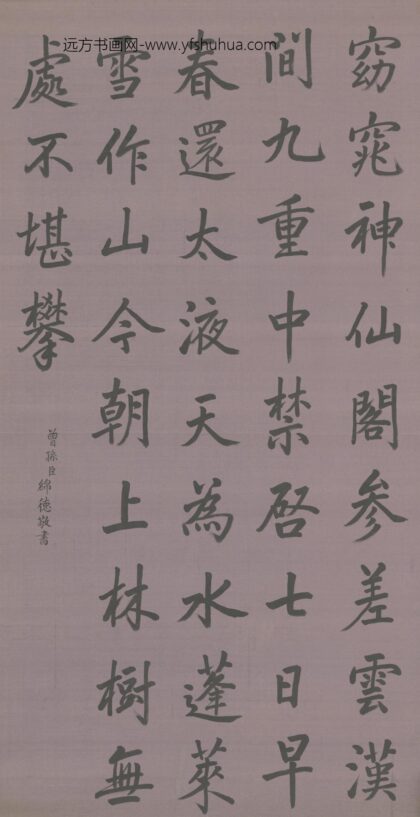 远方书画网-www.yfshuhua.com
窈窕神仙閣參差雲漢
間九重中禁啓七日早
春還太液天為水蓬萊
雪作山今朝上林樹無
處不堪攀
曾孫臣綿德敬書